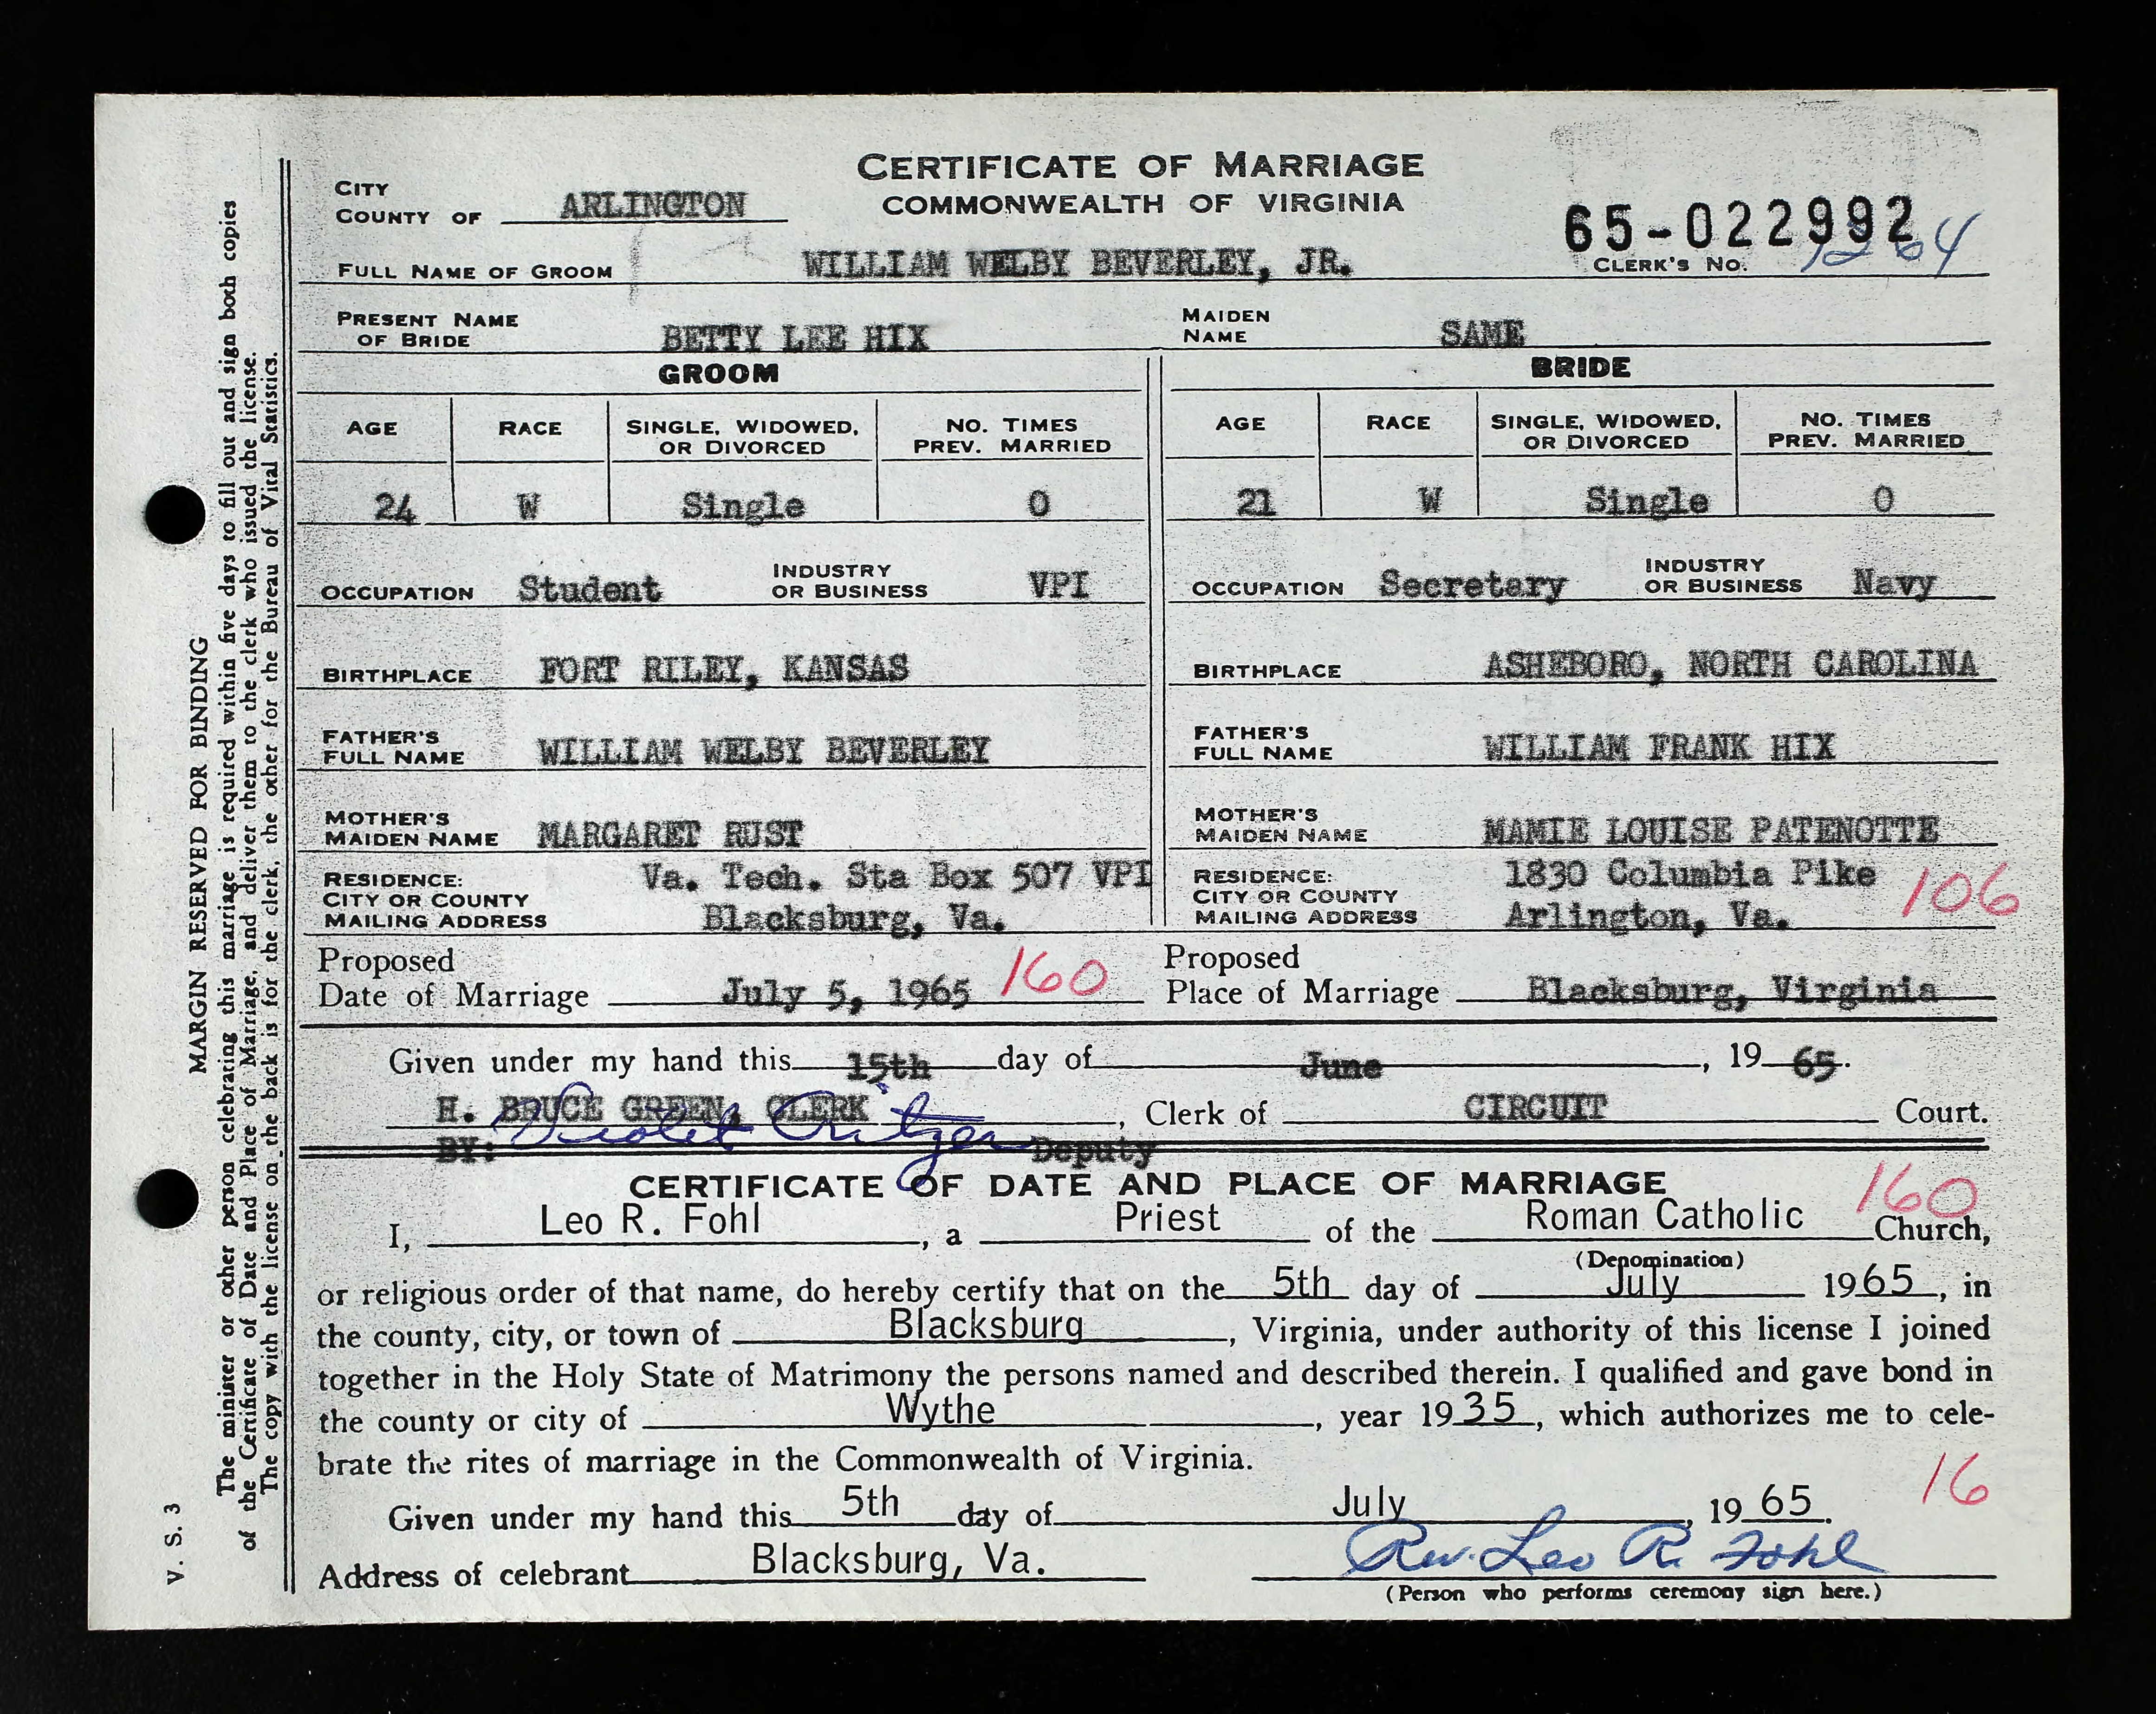 CERTIFICATE OF MARRIAGE
COMMONWEALTH OF VIRGINIA
CITY
COUNTY OF ARLINGTON
65-022992
CLERK'S No. 1264
FULL NAME OF GROOM WILLIAM WELBY BEVERLEY, JR.
PRESENT NAME OF BRIDE BETTY LEE HIX MAIDEN NAME SAME
GROOM BRIDE
AGE RACE SINGLE, WIDOWED, OR DIVORCED NO. TIMES PREV. MARRIED AGE RACE SINGLE, WIDOWED, OR DIVORCED NO. TIMES PREV. MARRIED
24 W Single 0 21 W Single 0
OCCUPATION Student INDUSTRY OR BUSINESS VPI OCCUPATION Secretary INDUSTRY OR BUSINESS Navy
BIRTHPLACE FORT RILEY, KANSAS BIRTHPLACE ASHEBORO, NORTH CAROLINA
FATHER'S FULL NAME WILLIAM WELBY BEVERLEY FATHER'S FULL NAME WILLIAM FRANK HIX
MOTHER'S MAIDEN NAME MARGARET RUST MOTHER'S MAIDEN NAME MAMIE LOUISE PATENOTTE
RESIDENCE: CITY OR COUNTY MAILING ADDRESS Va. Tech. Sta Box 507 VPI Blacksburg, Va. RESIDENCE: CITY OR COUNTY MAILING ADDRESS 1830 Columbia Pike Arlington, Va. 106
Proposed Date of Marriage July 5, 1965 160 Proposed Place of Marriage Blacksburg, Virginia
Given under my hand this 15th day of June, 19 65.
H. BRUCE GREEN, CLERK, Clerk of CIRCUIT Court.
BY: Violet Deputy
CERTIFICATE OF DATE AND PLACE OF MARRIAGE 160
I, Leo R. Fohl, a Priest of the Roman Catholic Church,
(Denomination)
or religious order of that name, do hereby certify that on the 5th day of July 1965, in
the county, city, or town of Blacksburg, Virginia, under authority of this license I joined
together in the Holy State of Matrimony the persons named and described therein. I qualified and gave bond in
the county or city of Wythe, year 1935, which authorizes me to cele-
brate the rites of marriage in the Commonwealth of Virginia.
16
Given under my hand this 5th day of July, 19 65.
Address of celebrant Blacksburg, Va. Rev. Leo R. Fohl
(Person who performs ceremony sign here.)
V. S. 3
MARGIN RESERVED FOR BINDING
The minister or other person celebrating this marriage is required within five days to fill out and sign both copies
of the Certificate of Date and Place of Marriage, and deliver them to the clerk who issued the license.
The copy with the license on the back is for the clerk, the other for the Bureau of Vital Statistics.